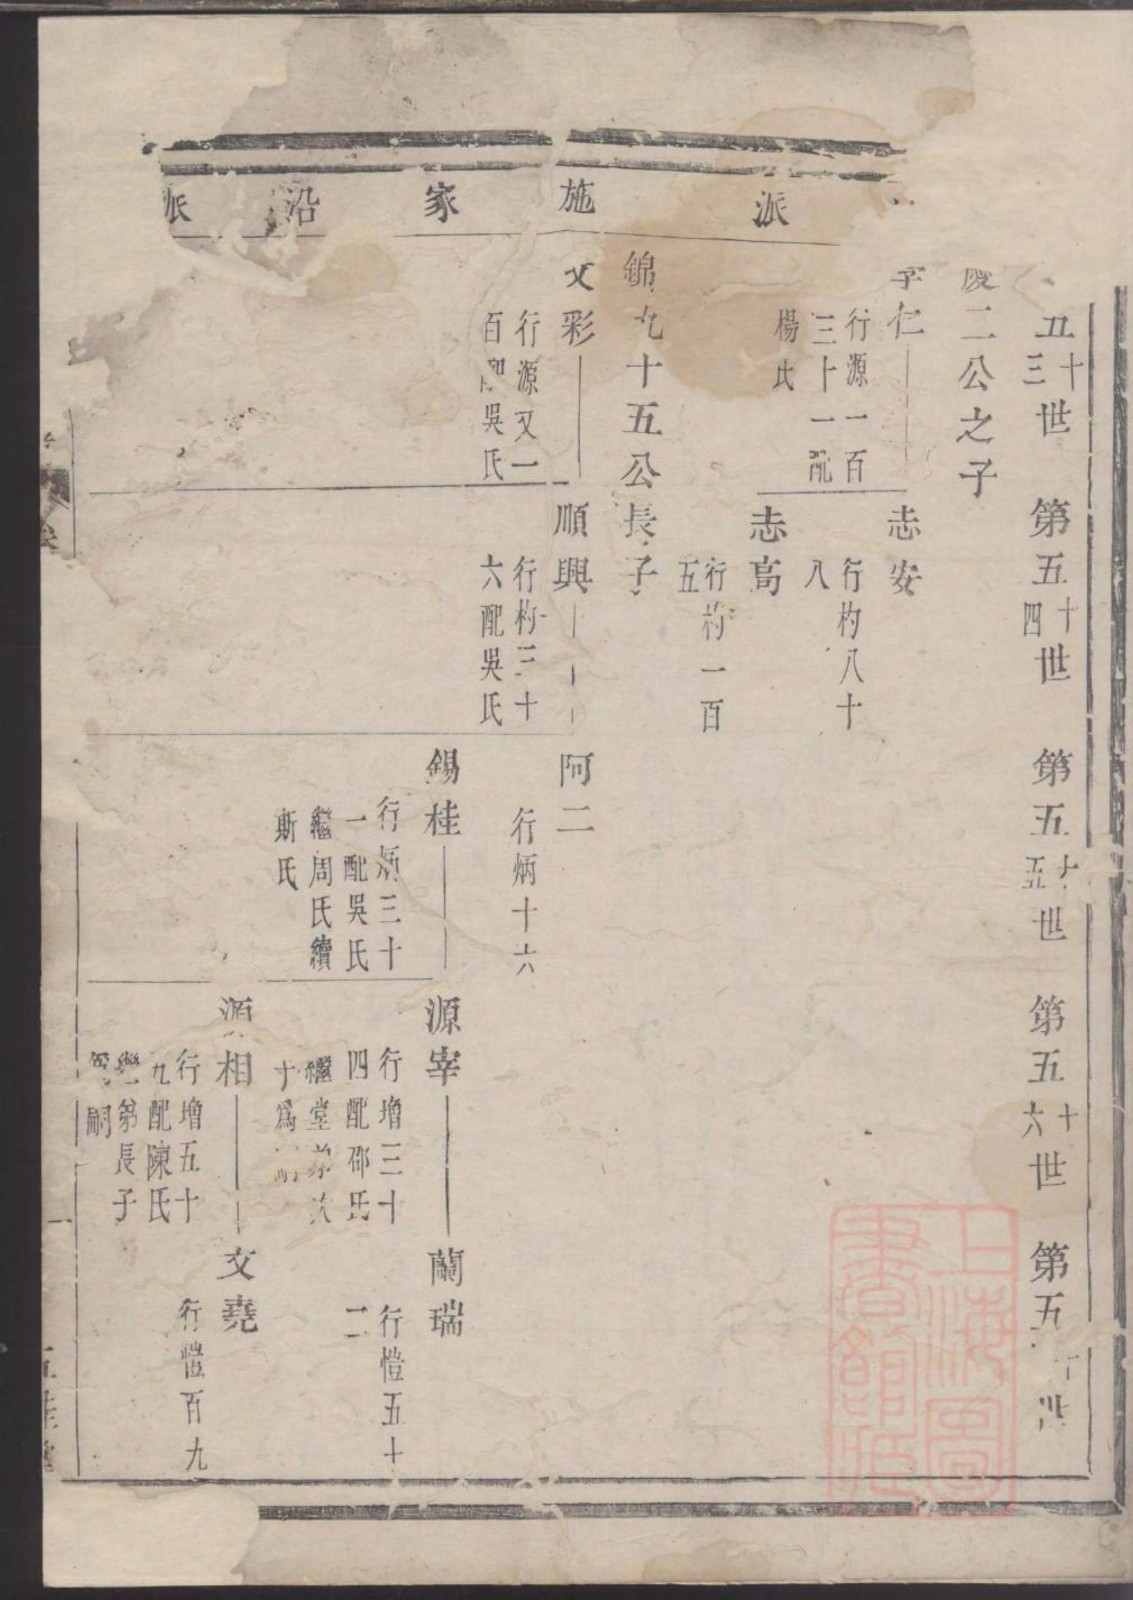 派 施 家 沿 派
五十三世
第五十四世
第五十五世
第五十六世
第五 世
二公之子
仁
行源一百
三十一配
楊氏
志安
行杓八十
八
志高
行杓一百
五
錦九十五公長子
文彩
行源又一
百 吳氏
順興
行杓三十
六配吳氏
阿二
行炳十六
錫桂
行炳三十
一配吳氏
繼周氏續
斯氏
源宰
行增三十
四配邵氏
繼堂弟次
子爲
蘭瑞
行愷五十
二
源相
行增五十
九配陳氏
繼弟長子
爲嗣
文堯
行愷百九
一
五桂堂
上海圖書館藏